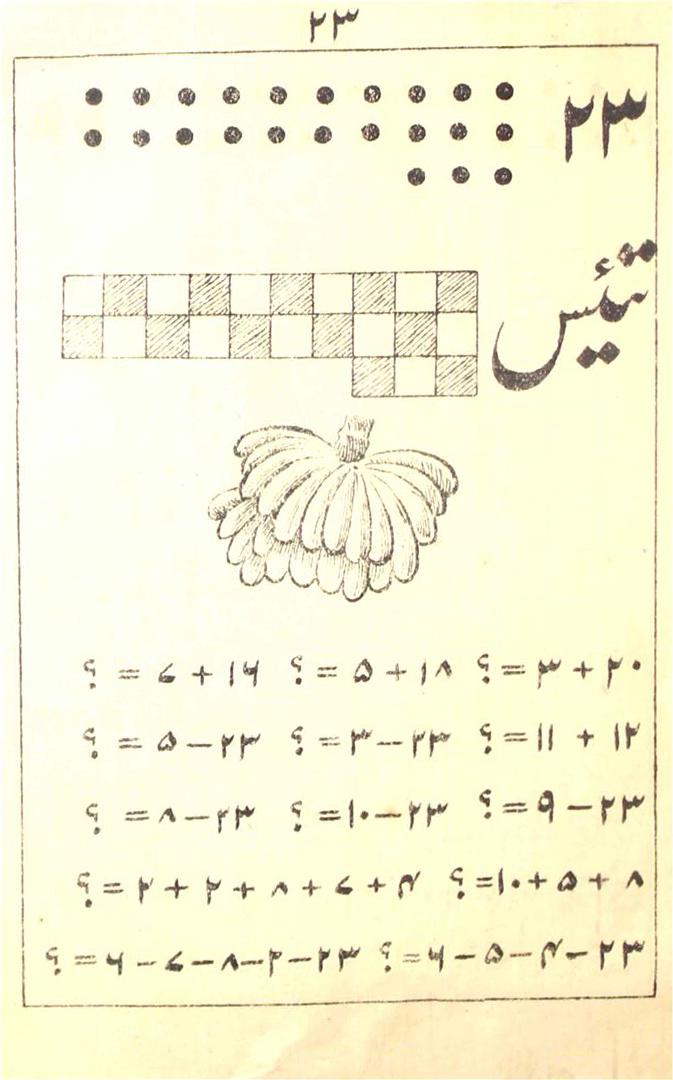 ۲۳
۲۳
تئیس
۲۰ + ۳ = ؟ ۱۸ + ۵ = ؟ ۱۶ + ۷ = ؟
۱۲ + ۱۱ = ؟ ۲۳ − ۳ = ؟ ۲۳ − ۵ = ؟
۲۳ − ۹ = ؟ ۲۳ − ۱۰ = ؟ ۲۳ − ۸ = ؟
۸ + ۵ + ۱۰ = ؟ ۴ + ۷ + ۸ + ۲ + ۲ = ؟
۲۳ − ۴ − ۵ − ۶ = ؟ ۲۳ − ۲ − ۸ − ۷ − ۶ = ؟